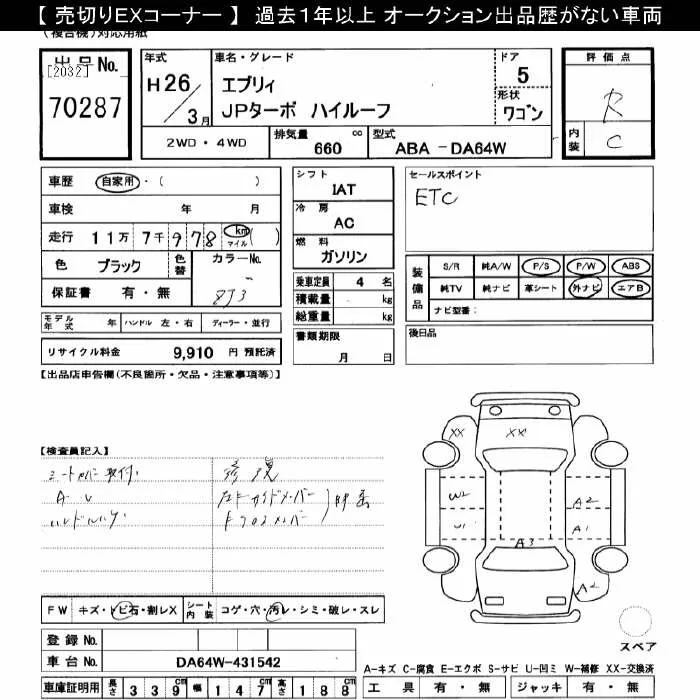 【 売切りEXコーナー 】 過去1年以上 オークション出品歴がない車両
(複合機)対応用紙
出品No.
[2032]
70287
年式
H26/3月
車名・グレード
エブリィ
JPターボ ハイルーフ
ドア
5
形状
ワゴン
評価点
R
内装
C
2WD・4WD
排気量 660 cc
型式 ABA -DA64W
車歴 自家用・( )
車検 年 月
走行 11万 7千 9 7 8 km マイル ( )
色 ブラック
色替
カラーNo.
保証書 有・無
8J3
モデル年式 年
ハンドル 左・右
ディーラー・並行
リサイクル料金 9,910 円 預託済
シフト
IAT
冷房
AC
燃料
ガソリン
乗車定員 4 名
積載量 kg
総重量 kg
書類期限
月 日
セールスポイント
ETC
装備品
S/R 純A/W P/S P/W ABS
純TV 純ナビ 革シート 外ナビ エアB
ナビ型番:
後日品
【出品店申告欄(不良箇所・欠品・注意事項等)】
【検査員記入】
シートカバー取付.
A U
修復
XX XX
W2
U1
A2
A1
A3
A2
FW キズ・トビ石・割レX
シート内装 コゲ・穴・汚レ・シミ・破レ・スレ
登録No.
車台No. DA64W-431542
車庫証明用 長さ 339 cm 幅 147 cm 高さ 188 cm
スペア
A-キズ C-腐食 E-エクボ S-サビ U-凹ミ W-補修 XX-交換済
工具 有・無 ジャッキ 有・無